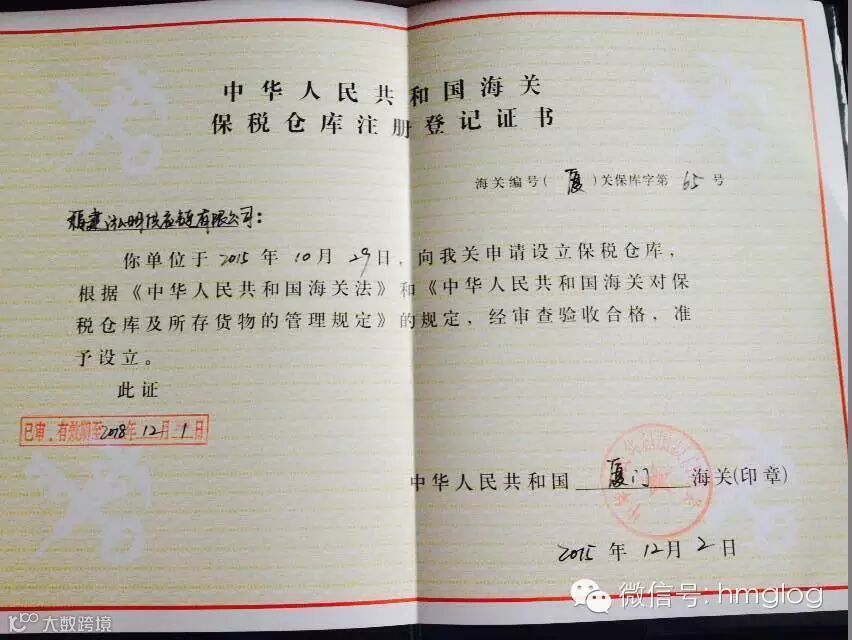 中华人民共和国海关
保税仓库注册登记证书
海关编号(厦)关保库字第 65 号
福建泓明供应链有限公司:
你单位于 2015 年 10 月 29 日,向我关申请设立保税仓库,
根据《中华人民共和国海关法》和《中华人民共和国海关对保
税仓库及所存货物的管理规定》的规定,经审查验收合格,准
予设立。
此证
已审,有效期至2018年12月1日
中华人民共和国 厦门 海关(印章)
2015 年 12 月 2 日
微信号: hmglog
大数跨境